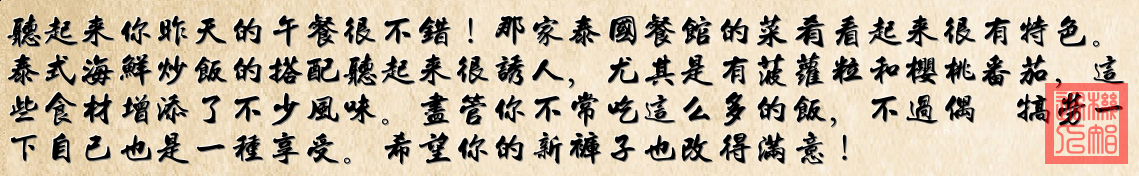 聽起来你昨天的午餐很不錯！那家泰國餐館的菜肴看起来很有特色。
泰式海鮮炒飯的搭配聽起来很誘人，尤其是有菠蘿粒和櫻桃番茄，這
些食材增添了不少風味。盡管你不常吃這么多的飯，不過偶　犒勞一
下自己也是一種享受。希望你的新褲子也改得滿意！